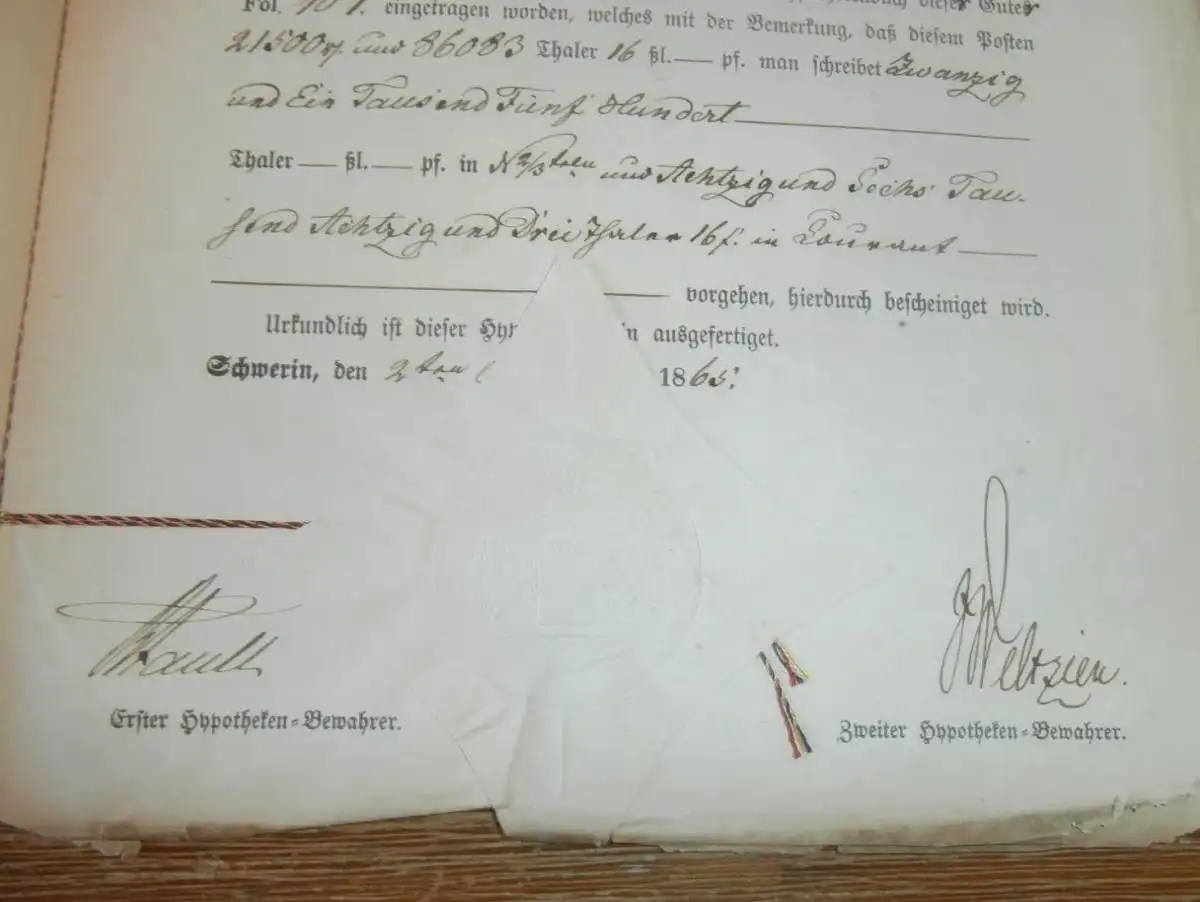 dieser Gutes
Fol. eingetragen worden, welches mit der Bemerkung, daß diesem Posten
21500 und 86083 Thaler 16 ßl. — pf. man schreibet Zwanzig
und Ein Tausend Fünf Hundert
Thaler — ßl. — pf. in N 2/3teln und Achtzig und Sechs Tau-
send Achtzig und Drei Thaler 16 ß. in Courant
vorgehen, hierdurch bescheiniget wird.
Urkundlich ist dieser Hyp in ausgefertiget.
Schwerin, den 2ten 1865.
Weltzien.
Erster Hypotheken-Bewahrer.
Zweiter Hypotheken-Bewahrer.